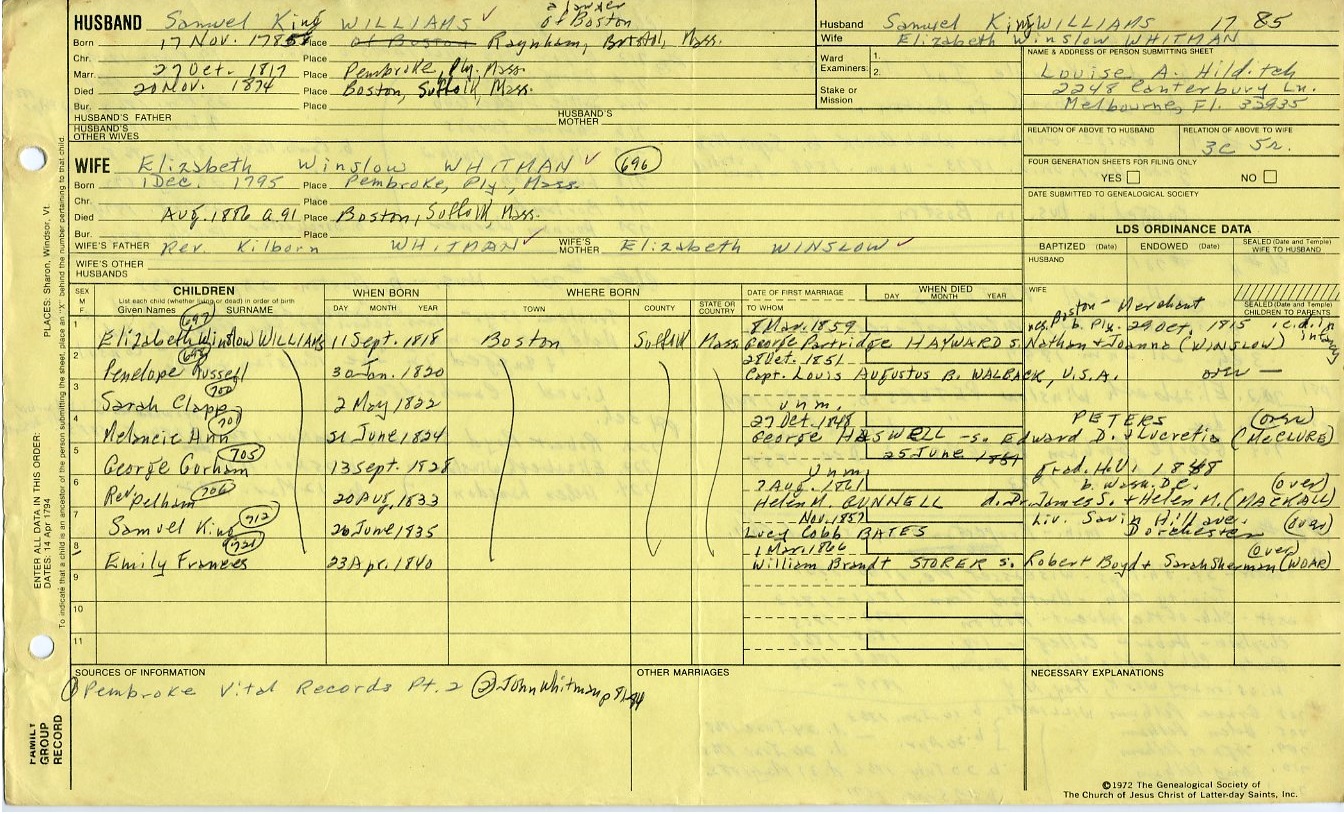 HUSBAND Samuel King WILLIAMS ✓ of Boston
Born 17 Nov. 1785 Place of Boston Raynham, Bristol, Mass.
Chr. Place
Marr. 27 Oct. 1817 Place Pembroke, Ply. Mass.
Died 20 Nov. 1874 Place Boston, Suffolk, Mass.
Bur. Place
HUSBAND'S FATHER HUSBAND'S MOTHER
HUSBAND'S OTHER WIVES
WIFE Elizabeth Winslow WHITMAN ✓ 696
Born 1 Dec. 1795 Place Pembroke, Ply., Mass.
Chr. Place
Died Aug. 1886 a. 91 Place Boston, Suffolk, Mass.
Bur. Place
WIFE'S FATHER Rev. Kilborn WHITMAN ✓ WIFE'S MOTHER Elizabeth WINSLOW ✓
WIFE'S OTHER HUSBANDS
Husband Samuel King WILLIAMS 1785
Wife Elizabeth Winslow WHITMAN
Ward Examiners: 1. 2.
Stake or Mission
NAME & ADDRESS OF PERSON SUBMITTING SHEET
Louise A. Hilditch
2248 Canterbury Ln.
Melbourne, Fl. 32935
RELATION OF ABOVE TO HUSBAND RELATION OF ABOVE TO WIFE
3c 5r.
FOUR GENERATION SHEETS FOR FILING ONLY
YES NO
DATE SUBMITTED TO GENEALOGICAL SOCIETY
LDS ORDINANCE DATA
BAPTIZED (Date) ENDOWED (Date) SEALED (Date and Temple) WIFE TO HUSBAND
HUSBAND
WIFE
SEALED (Date and Temple) CHILDREN TO PARENTS
SEX M F CHILDREN WHEN BORN WHERE BORN DATE OF FIRST MARRIAGE WHEN DIED
List each child (whether living or dead) in order of birth
Given Names SURNAME DAY MONTH YEAR TOWN COUNTY STATE OR COUNTRY TO WHOM DAY MONTH YEAR
697 8 Mar. 1859 Boston - Merchant
1 Elizabeth Winslow WILLIAMS 11 Sept. 1818 Boston Suffolk Mass. George Partridge HAYWARD s. Nathan & Joanna (WINSLOW)
b. Ply. 29 Oct. 1815
698 28 Oct. 1851
2 Penelope Russell 30 Jan. 1820 Capt. Louis Augustus B. WALBACK, U.S.A. over —
702
3 Sarah Clapp 2 May 1822 unm.
27 Oct. 1848 PETERS (over)
4 Melancie Ann 21 June 1824 George HASWELL - s. Edward D. & Lucretia (McCLURE)
705 25 June
5 George Gorham 13 Sept. 1828 Unm. grad. H.U. 1848
706 7 Aug. 1861 b. Wash. D.C. (over)
6 Rev. Pelham 20 Aug. 1833 Helen M. BUNNELL d. Dr. James S. & Helen M. (MACKALL)
712 Nov. 1857 Liv. Savin Hill ave. Dorchester (over)
7 Samuel King 26 June 1835 Lucy Cobb BATES
721 1 Mar. 1866 (over)
8 Emily Frances 23 Apr. 1840 William Brandt STORER s. Robert Boyd & Sarah Sherman (HOAR)
9
10
11
SOURCES OF INFORMATION OTHER MARRIAGES NECESSARY EXPLANATIONS
① Pembroke Vital Records Pt. 2 ② John Whitman p
©1972 The Genealogical Society of
The Church of Jesus Christ of Latter-day Saints, Inc.
PLACES: Sharon, Windsor, Vt.
ENTER ALL DATA IN THIS ORDER:
DATES: 14 Apr 1794
To indicate that a child is an ancestor of the person submitting the sheet, place an "X" behind the number pertaining to that child.
FAMILY
GROUP
RECORD